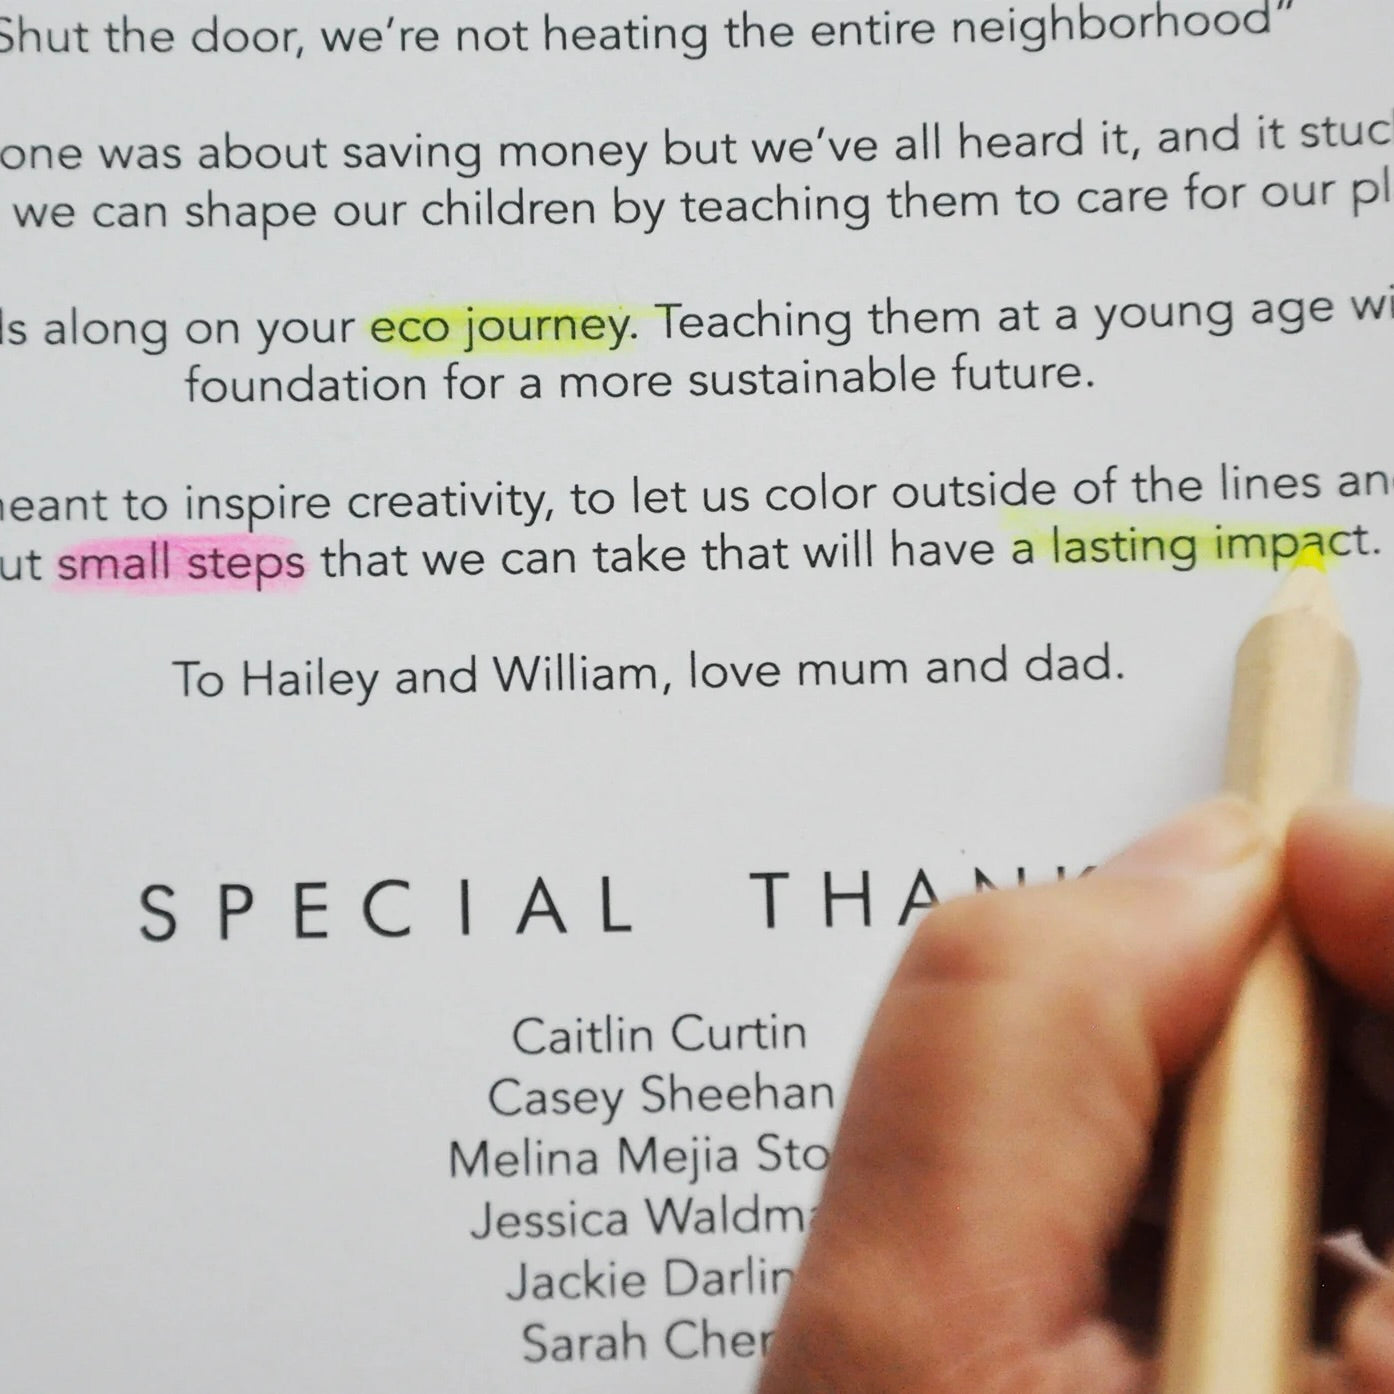 Shut the door, we're not heating the entire neighborhood"
one was about saving money but we've all heard it, and it
we can shape our children by teaching them to care for our
along on your eco journey. Teaching them at a young age
foundation for a more sustainable future.
to inspire creativity, to let us color outside of the lines
small steps that we can take that will have a lasting impact.
To Hailey and William, love mum and dad.
SPECIAL
Caitlin Curtin
Casey Sheehan
Melina Mejia
Jessica
Jackie
Sarah